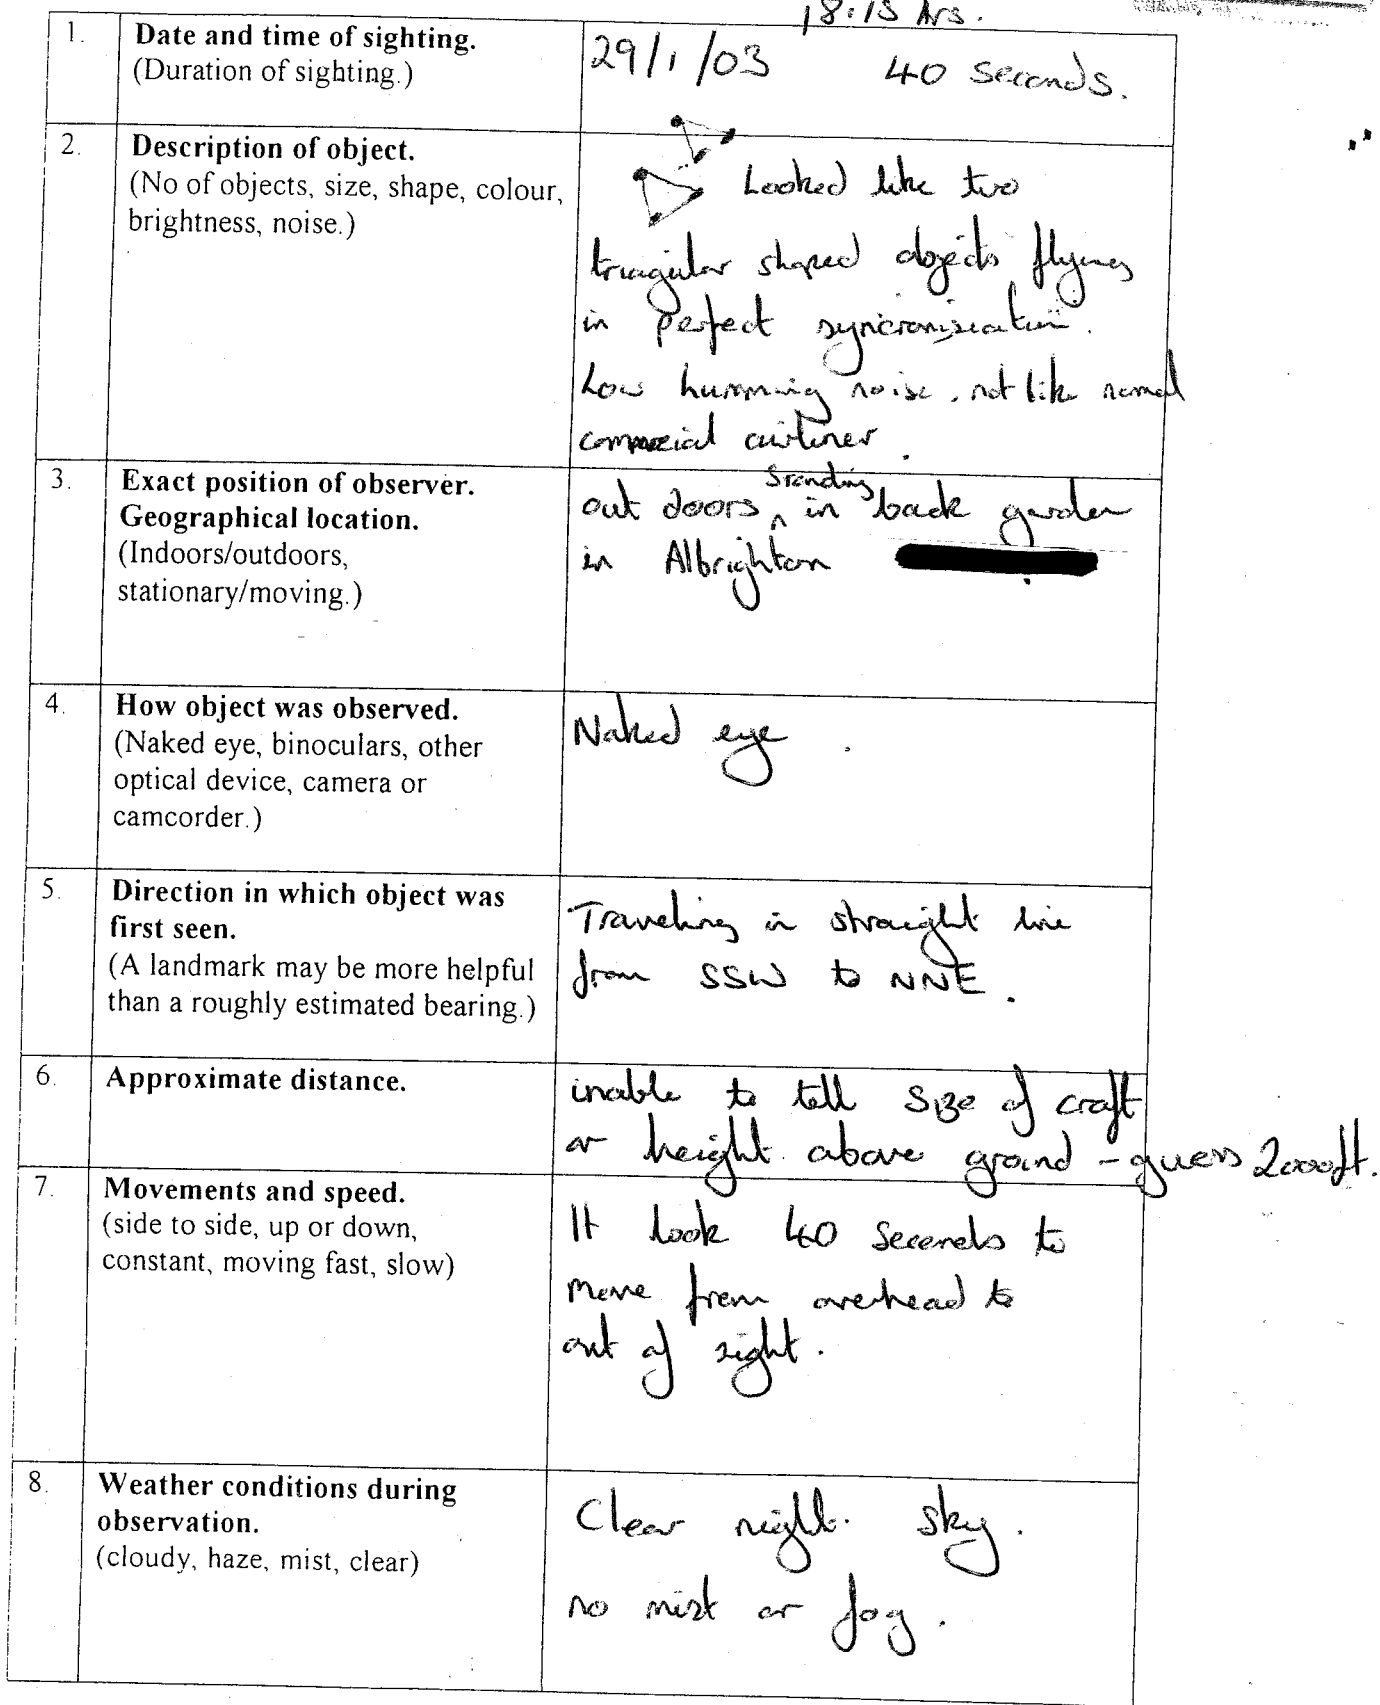 18:15 hrs.
1. Date and time of sighting.
(Duration of sighting.)
29/1/03 40 seconds.
2. Description of object.
(No of objects, size, shape, colour,
brightness, noise.)
Looked like two
triagular shaped objects flying
in perfect syncronisation.
Low humming noise, not like normal
commercial airliner.
3. Exact position of observer.
Geographical location.
(Indoors/outdoors,
stationary/moving.)
out doors standing in back garden
in Albrighton
4. How object was observed.
(Naked eye, binoculars, other
optical device, camera or
camcorder.)
Naked eye.
5. Direction in which object was
first seen.
(A landmark may be more helpful
than a roughly estimated bearing.)
Traveling in straight line
from SSW to NNE.
6. Approximate distance.
unable to tell size of craft
or height above ground - guess 2000ft.
7. Movements and speed.
(side to side, up or down,
constant, moving fast, slow)
It took 40 seconds to
move from overhead to
out of sight.
8. Weather conditions during
observation.
(cloudy, haze, mist, clear)
Clear night sky.
no mist or fog.